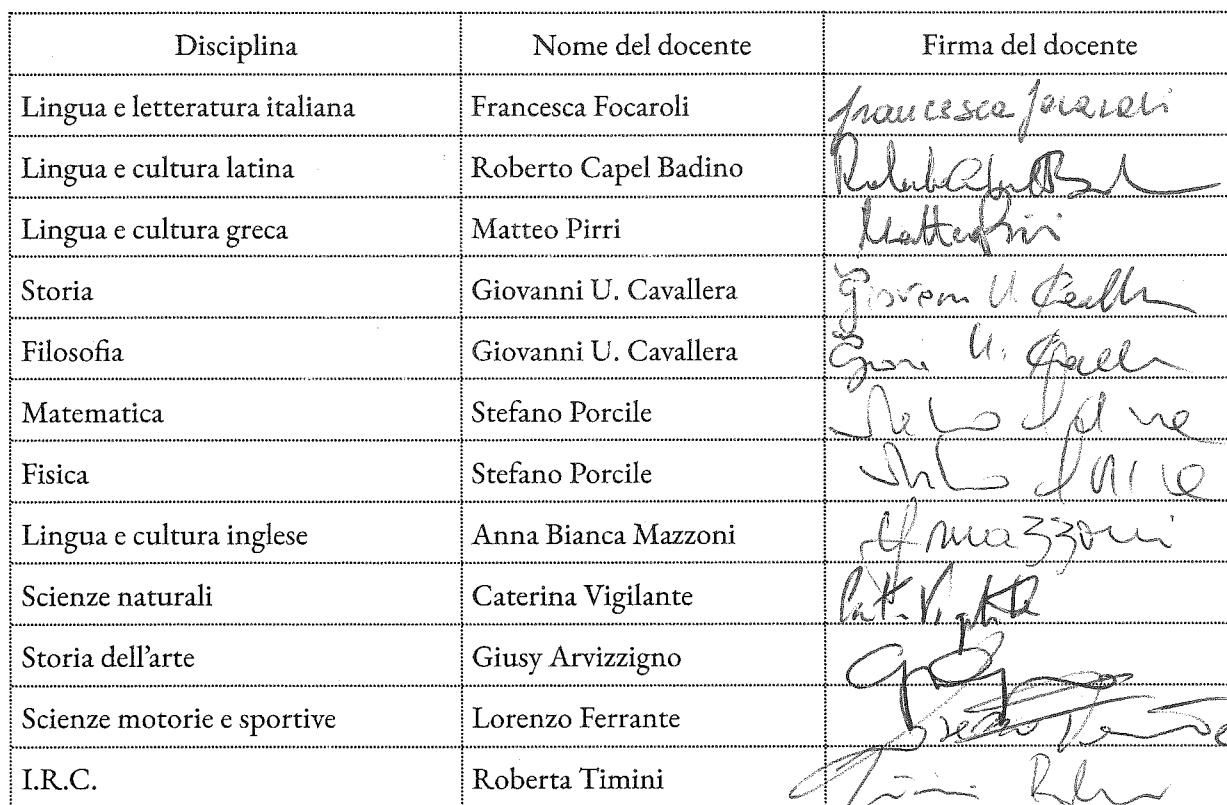 Disciplina Nome del docente Firma del docente
Lingua e letteratura italiana Francesca Focaroli Francesca Focaroli
Lingua e cultura latina Roberto Capel Badino
Lingua e cultura greca Matteo Pirri Matteo Pirri
Storia Giovanni U. Cavallera Giovanni U.
Filosofia Giovanni U. Cavallera U.
Matematica Stefano Porcile
Fisica Stefano Porcile
Lingua e cultura inglese Anna Bianca Mazzoni Mazzoni
Scienze naturali Caterina Vigilante
Storia dell'arte Giusy Arvizzigno
Scienze motorie e sportive Lorenzo Ferrante
I.R.C. Roberta Timini